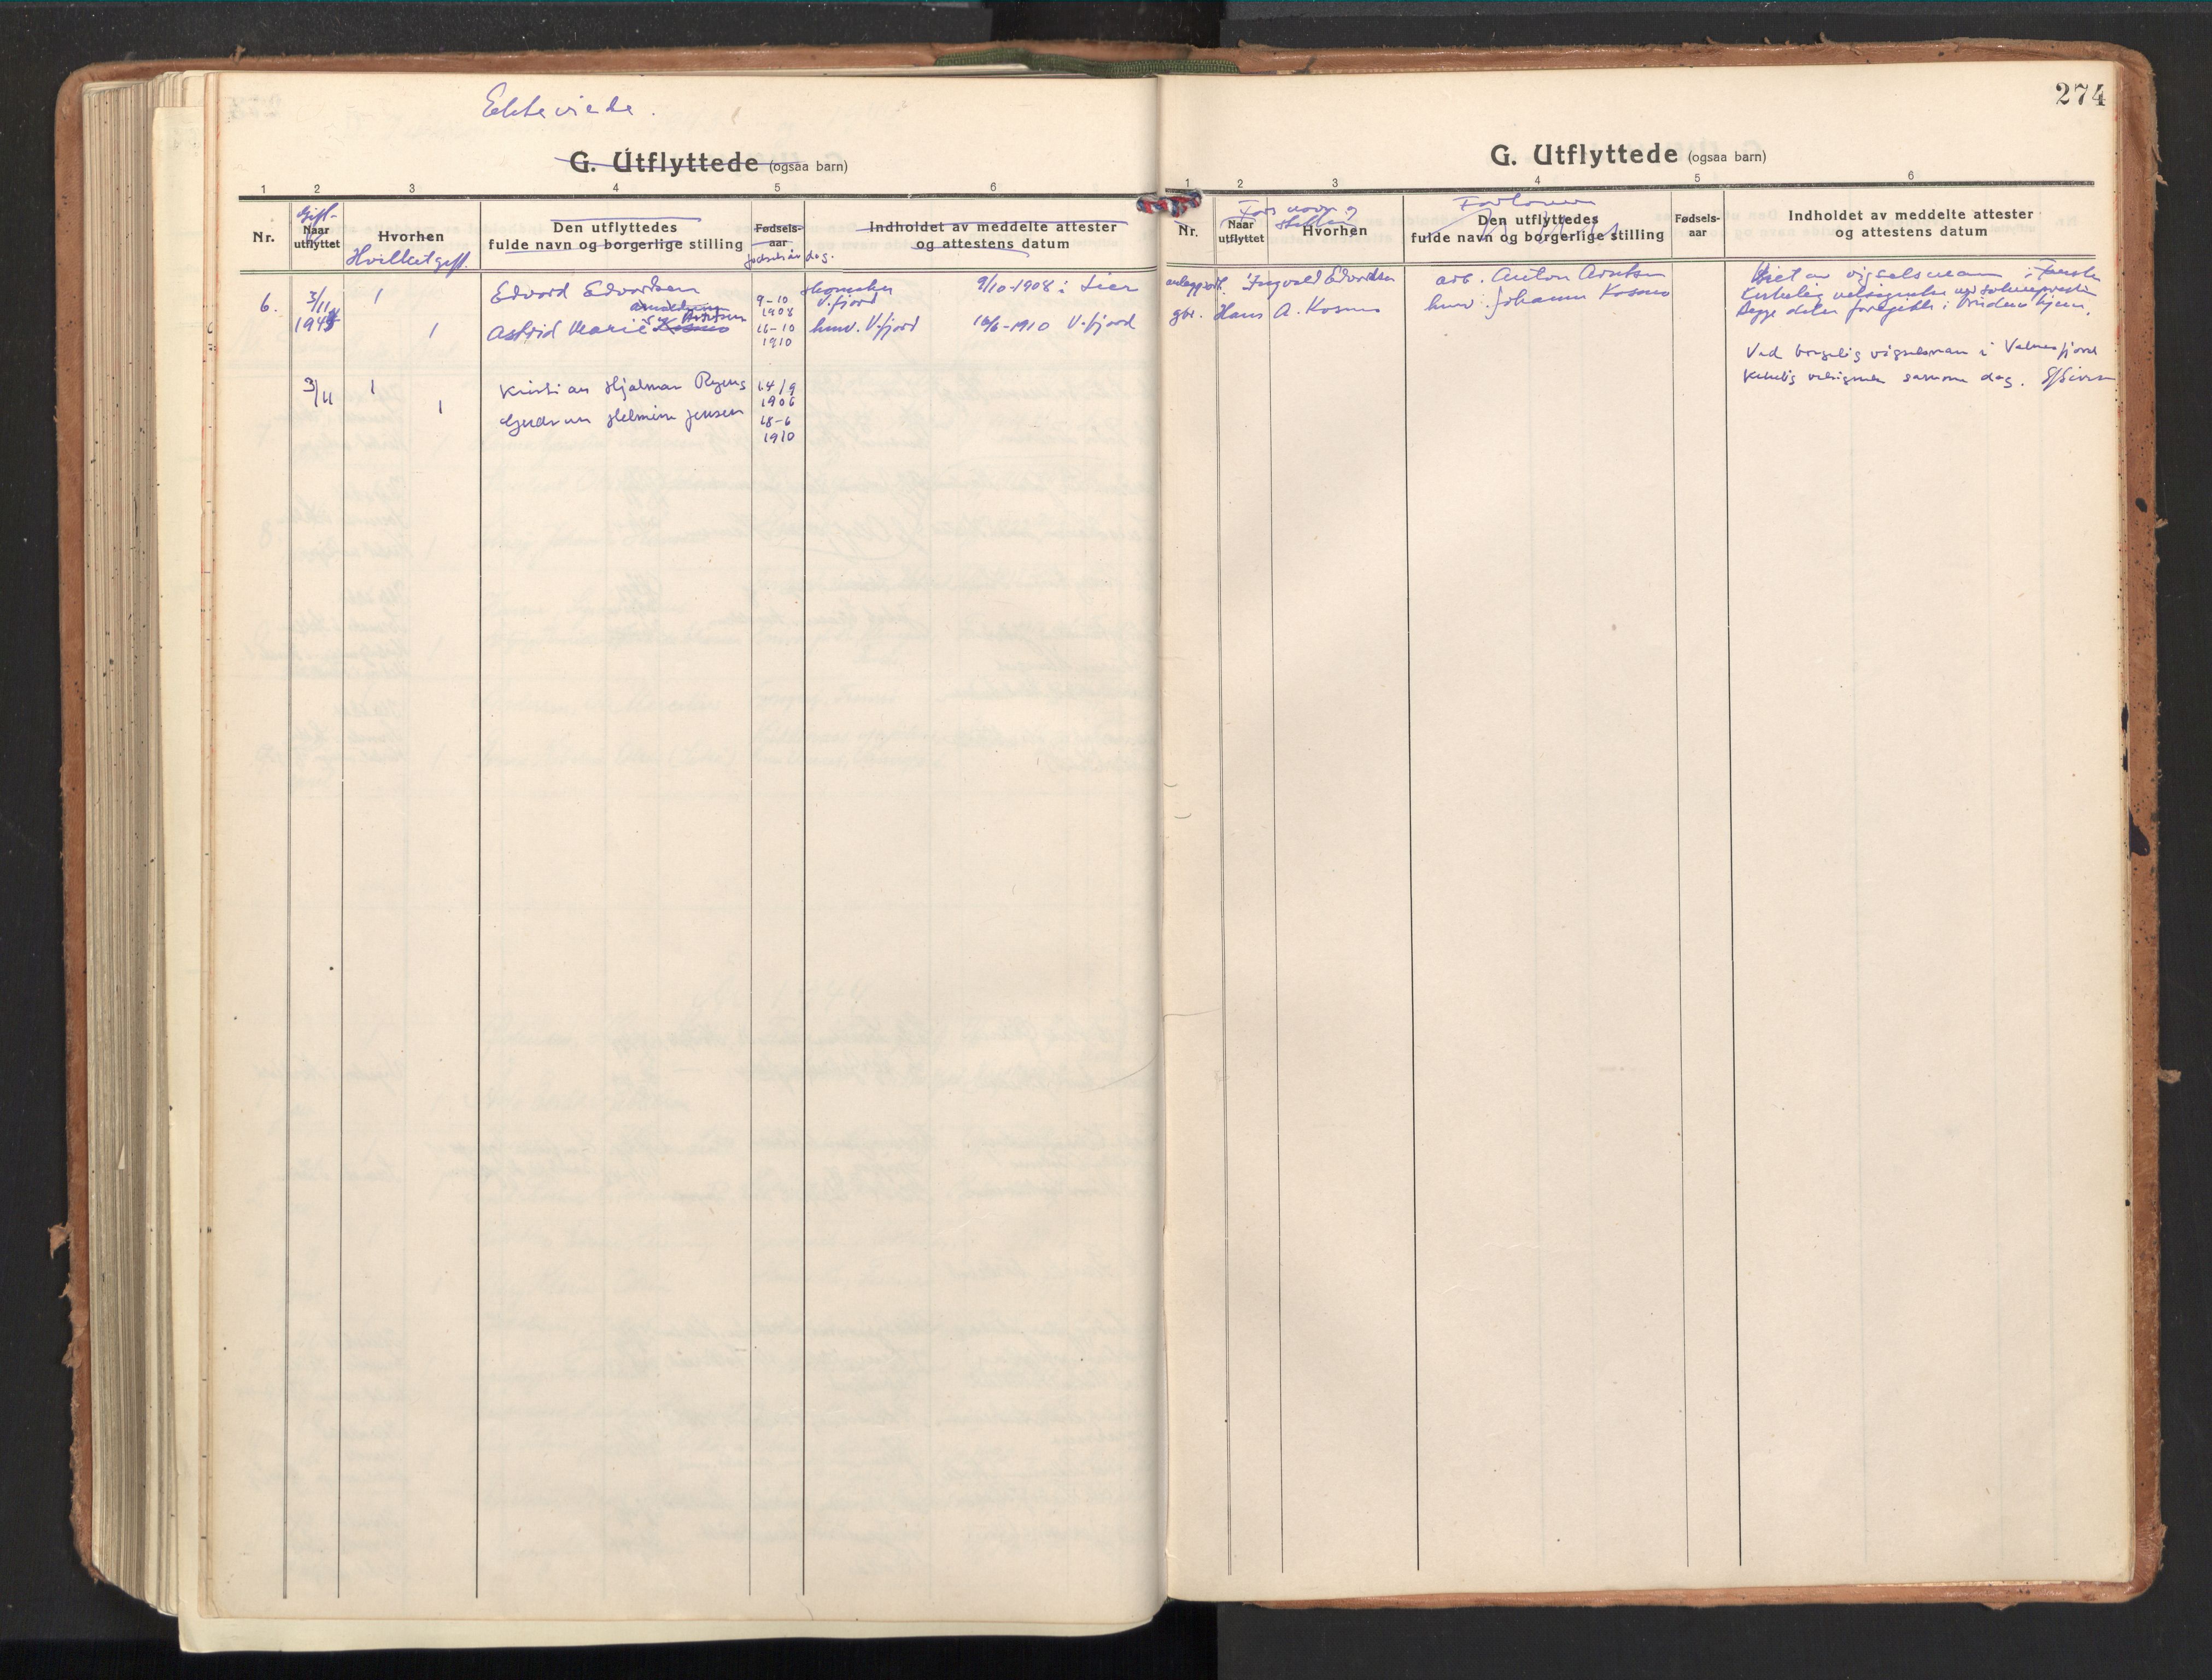 Ekteviede.
G. Utflyttede (ogsaa barn)
1 2 3 4 5 6
Nr.
Gift-
Naar
utflyttet
Hvorhen
Hvilket gift.
Den utflyttedes
fulde navn og borgerlige stilling
Fødsels-
aar
fødselsår dag.
Indholdet av meddelte attester
og attestens datum
6.
3/11
1945
1
Edvard Edvardsen
9-10
1908
V.fjord
9/10-1908 i Lier
1
Astrid Marie Kosmo
16-10
1910
hmv. V.fjord
16/6-1910 V.fjord
3/11
1
Kristian Hjalmar
14/9
1906
1
Gudrun Helmine Jensen
18-6
1910
274
G. Utflyttede (ogsaa barn)
1 2 3 4 5 6
Nr.
Naar
utflyttet
Fars navn og
stilling
Hvorhen
Forlovere
Den utflyttedes
fulde navn og borgerlige stilling
Fødsels-
aar
Indholdet av meddelte attester
og attestens datum
Ingvald Edvardsen
arb. Anton
gbr. Hans A. Kosmo
hmv. Johanna Kosmo
Viet av vigselsmann i
Kirkelig velsignelse ved
Begge deler foregikk i brudens hjem.
Ved borgelig vigselsman i Valnesfjord
Kirkelig velsignelse samme dag.